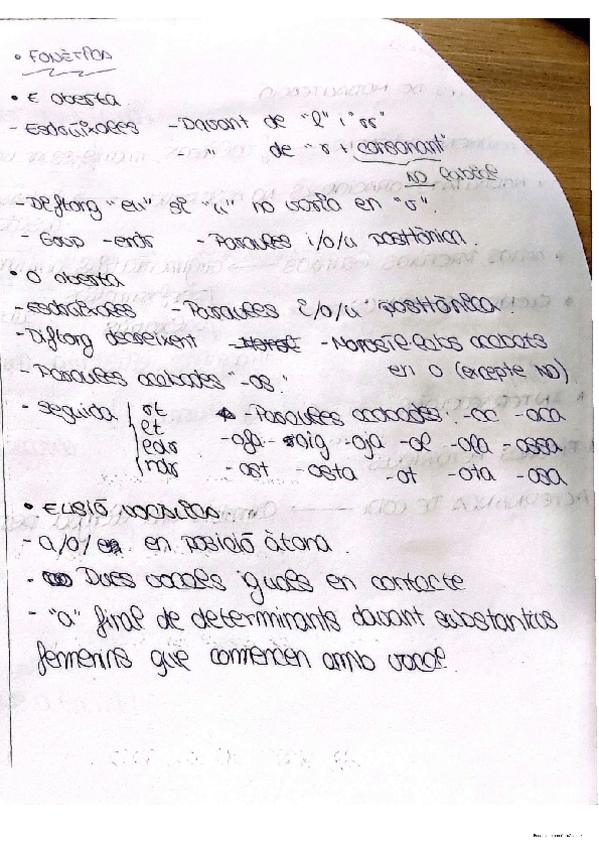 • FONÈTICA
• E oberta
- Esdrúixoles - Davant de "l" i "rr"
- " de "r + consonant"
NO labial
- Diftong "eu" si "u" no varia en "v".
- Grup -endr - Paraules i/o/u posttònica.
• O oberta
- esdrúixoles - Paraules i/o/u posttònica.
- Diftong decreixent - Monosíl·labs acabats
- Paraules acabades "-os" en o (excepte NO)
- Seguida rt - Paraules acabades: -oc -oca
- ofa -oig -oja -ol -ola -ossa
ndr - ost - osta - ot - ota - osa
• ELISIÓ VOCÀLICA
- a/o/e en posició àtona.
- Dues vocals iguals en contacte
- "a" final de determinants davant substantius
femenins que comencen amb vocal.